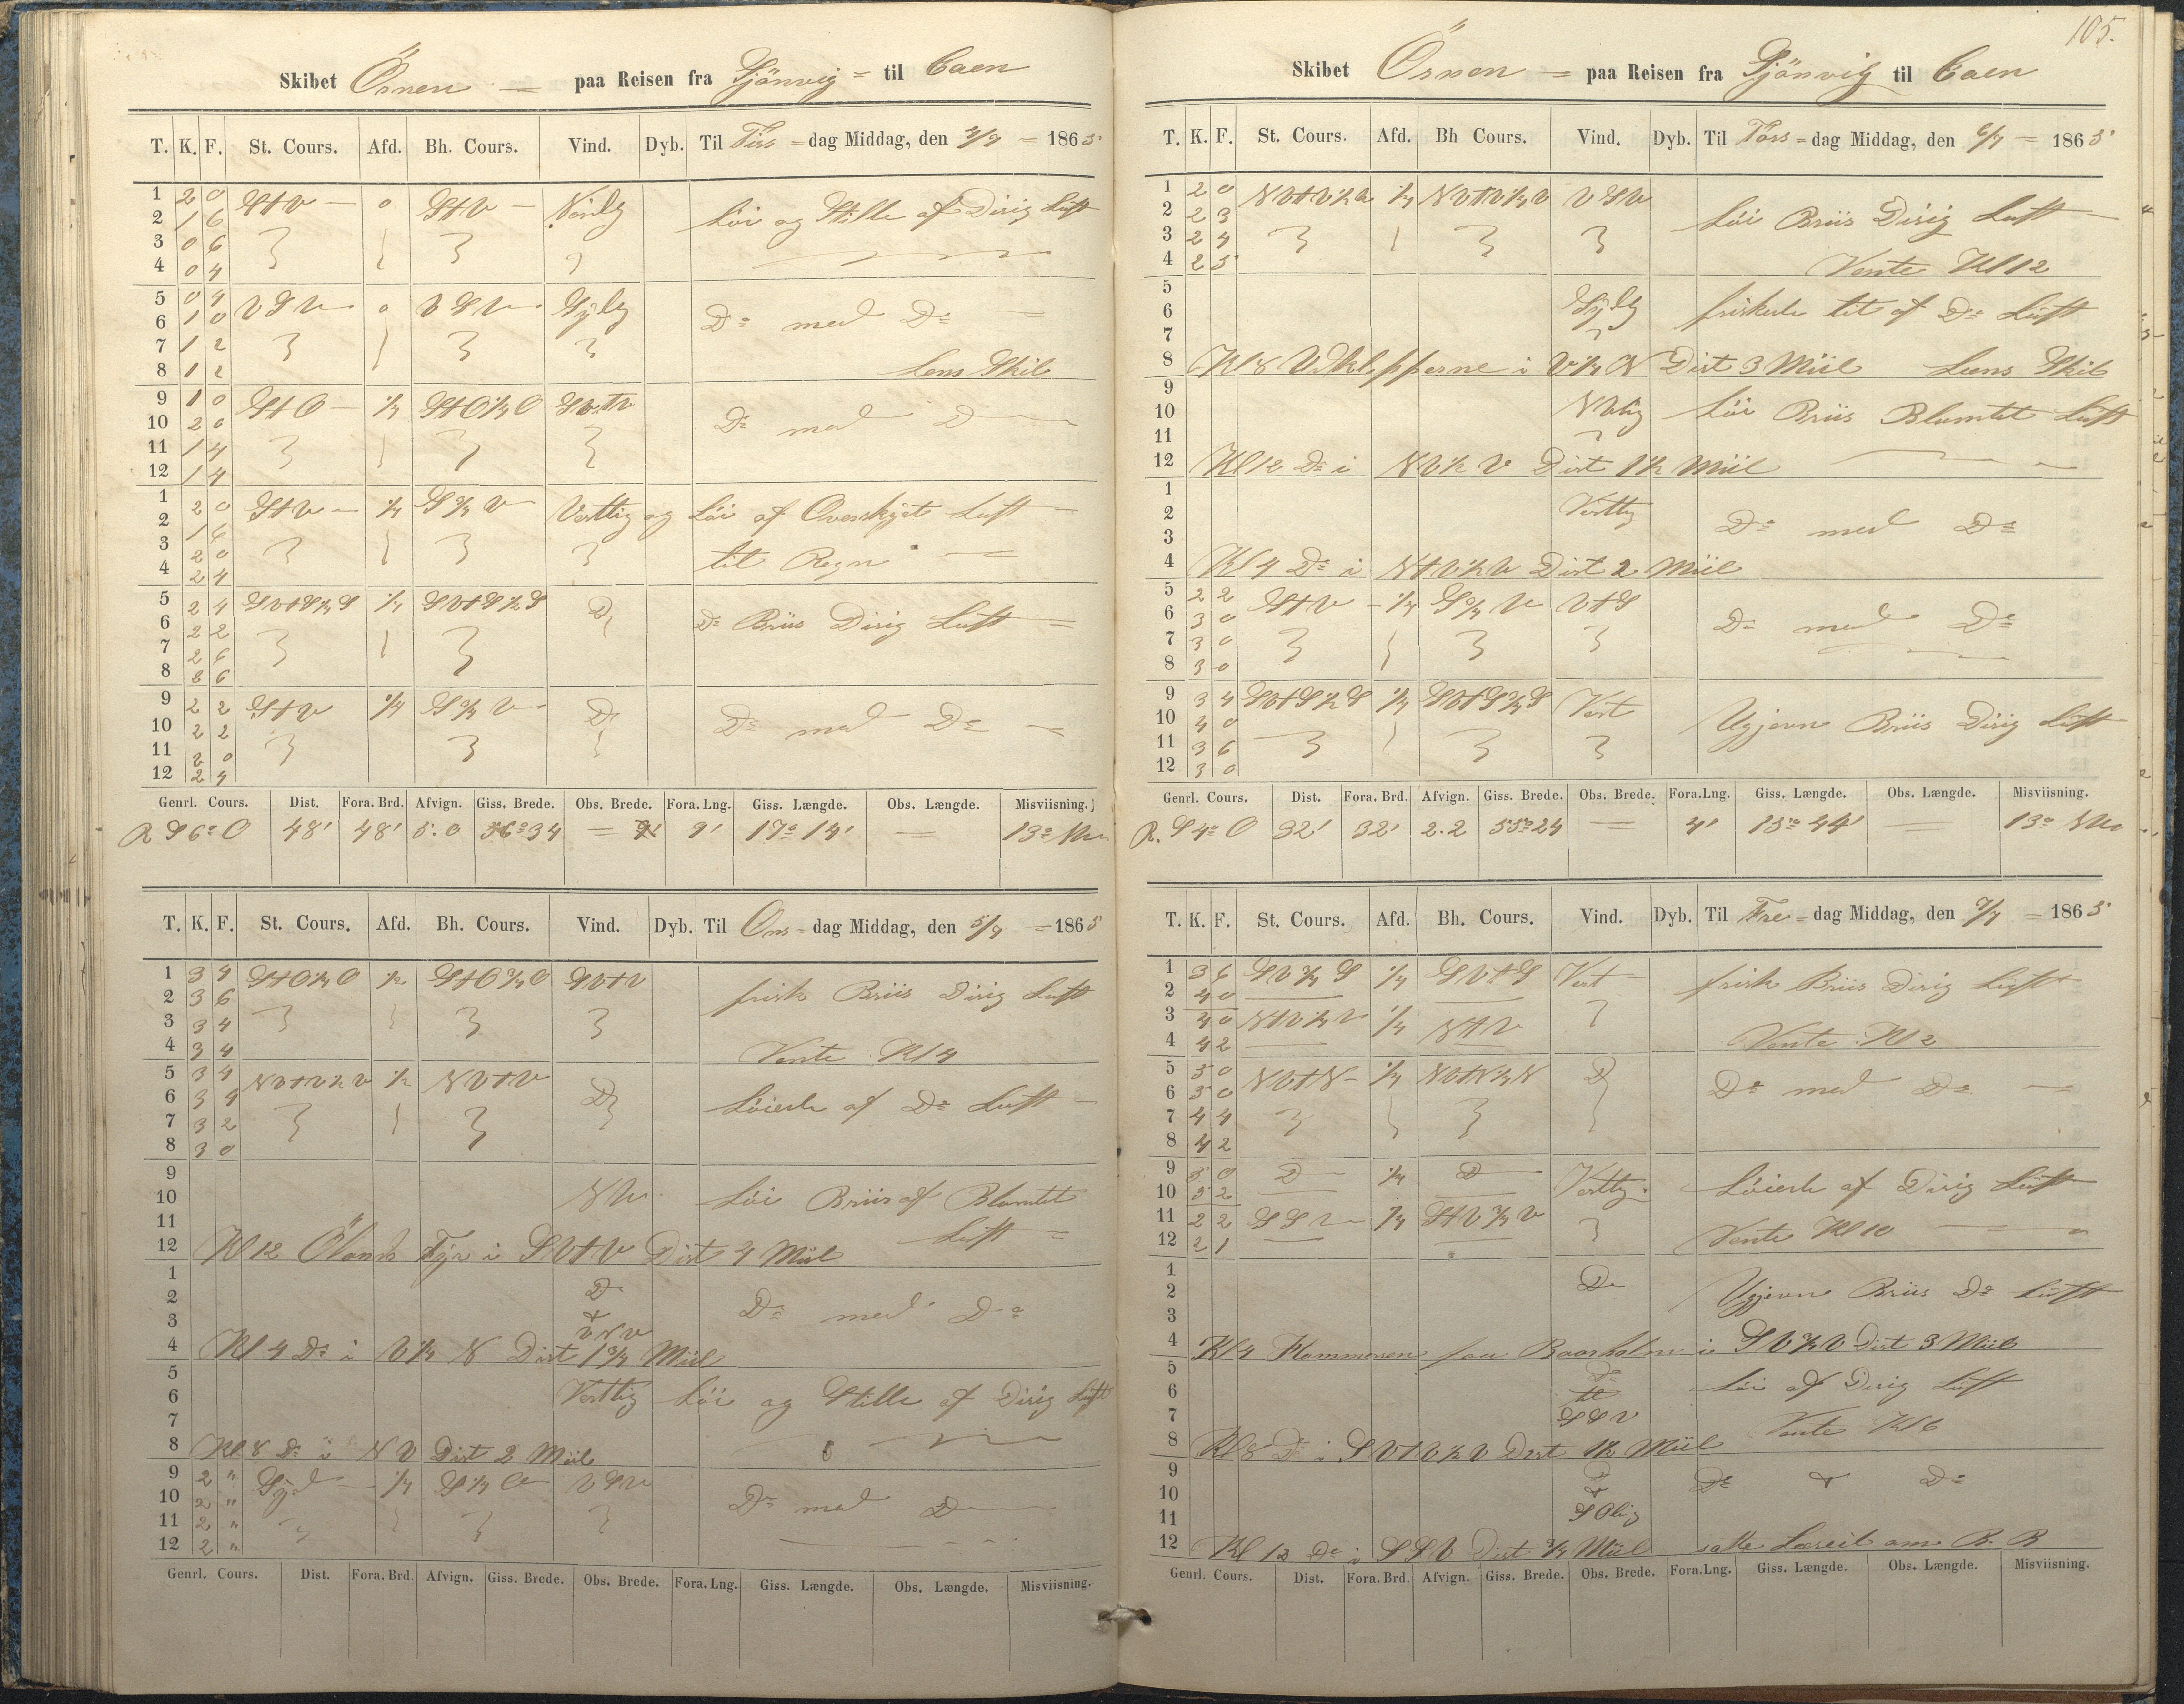 Skibet Örnen = paa Reisen fra Sjönvig = til Caen
T. K. F. St. Cours. Afd. Bh. Cours. Vind. Dyb. Til Tirs = dag Middag, den 4/7 = 1865
1 2 0 StV — 0 StV — Nordlg Löi og Stille af Dirig Luft
2 1 6
3 0 6
4 0 4
5 0 4 VSV 0 VSV Sydlg Do med Do
6 1 0
7 1 2
8 1 2 Lens Skib
9 1 0 StO — 1/4 StO1/4O SVtV Do med D
10 2 0
11 1 4
12 1 4
1 2 0 StV — 1/4 S3/4V Vesttig og Löi af Overskyet Luft
2 1 6
3 2 0 til Regn
4 2 4
5 2 4 SVtS1/4S 1/4 SVtS1/2S Do Do Briis Dirig Luft
6 2 2
7 2 6
8 2 6
9 2 2 StV 1/4 S3/4V Do Do med Do
10 2 2
11 2 0
12 2 4
Genrl. Cours. Dist. Fora. Brd. Afvign. Giss. Brede. Obs. Brede. Fora. Lng. Giss. Længde. Obs. Længde. Misviisning.
R S6°O 48' 48' 5.0 56°34 = 9' 17°14' — 13° NV
T. K. F. St. Cours. Afd. Bh. Cours. Vind. Dyb. Til Ons = dag Middag, den 5/7 = 1865
1 3 4 StO1/4O 1/2 StO3/4O SVtV frisk Briis Dirig Luft
2 3 6
3 3 4
4 3 4 Vente Kl 4
5 3 4 NVtV1/2V 1/2 NVtV Do Löiede af Do Luft
6 3 4
7 3 2
8 3 0
9
10 NV. Löi Briis af Blamlet
11 Luft =
12 Kl 12 Ölands Fyr i SVtV Dist 4 Miil
1 D
2 & Do med Do
3 VNV
4 Kl 4 Do i V1/4N Dist 1 3/4 Miil
5
6 Vesttig Löi og Stille af Dirig Luft
7
8 Kl 8 Do i NV Dist 2 Miil
9 2 " Syd — 1/4 S1/4V VSV Do med D
10 2 "
11 2 "
12 2 "
Genrl. Cours. Dist. Fora. Brd. Afvign. Giss. Brede. Obs. Brede. Fora. Lng. Giss. Længde. Obs. Længde. Misviisning.
105.
Skibet Örnen = paa Reisen fra Sjönvig til Caen
T. K. F. St. Cours. Afd. Bh Cours. Vind. Dyb. Til Tors = dag Middag, den 6/7 = 1865
1 2 0 NVtV1/2V 1/4 NVtV1/4V VSV
2 2 3 Löi Briis Dirig Luft
3 2 4
4 2 5 Vente Kl 12
5
6 Sydlg friskede lit af Do Luft
7
8 Kl 8 Utklipperne i V1/4N Dist 3 Miil Lens Skib
9
10 NVlig Löi Briis Blamlet Luft
11
12 Kl 12 Do i NV1/2V Dist 1 1/2 Miil
1
2 Vesttig Do med Do
3
4 Kl 4 Do i NtV1/2V Dist 2 Miil
5 2 2 StV — 1/4 S3/4V VtS
6 3 0 Do med Do
7 3 0
8 3 0
9 3 4 SVtS1/2S 1/4 SVtS3/4S Vest
10 4 0 Ugjevn Briis Dirig Luft
11 3 6
12 3 0
Genrl. Cours. Dist. Fora. Brd. Afvign. Giss. Brede. Obs. Brede. Fora.Lng. Giss. Længde. Obs. Længde. Misviisning.
R. S4°O 32' 32' 2.2 55°24 — 4' 13°44' — 13° NV
T. K. F. St. Cours. Afd. Bh. Cours. Vind. Dyb. Til Fre = dag Middag, den 7/7 = 1865
1 3 6 SV3/4S 1/4 SVtS Vest frisk Briis Dirig Luft
2 4 0
3 4 0 NtV1/4V 1/4 NtV
4 4 2 Vente Kl 2
5 5 0 NVtN — 1/4 NVtN1/4N D Do med Do
6 5 0
7 4 4
8 4 2
9 5 0 D 1/4 D Vesttig Löiede af Dirig Luft
10 5 2
11 2 2 SSV 1/4 StV3/4V
12 2 1 Vente Kl 10
1 D
2 Ugjevn Briis Do Luft
3
4 Kl 4 Hammeren paa Boornholm i SV3/4V Dist 3 Miil
5 Do
6 til Löi af Dirig Luft
7 SSV Vente Kl 6
8 Kl 8 Do i SVtV1/2V Dist 1 1/2 Miil
9 D
10 & Do & Do
11 SOlig
12 Kl 12 Do i SSV Dist 3/4 Miil satte Læseil om B. B
Genrl. Cours. Dist. Fora. Brd. Afvign. Giss. Brede. Obs. Brede. Fora.Lng. Giss. Længde. Obs. Længde. Misviisning.